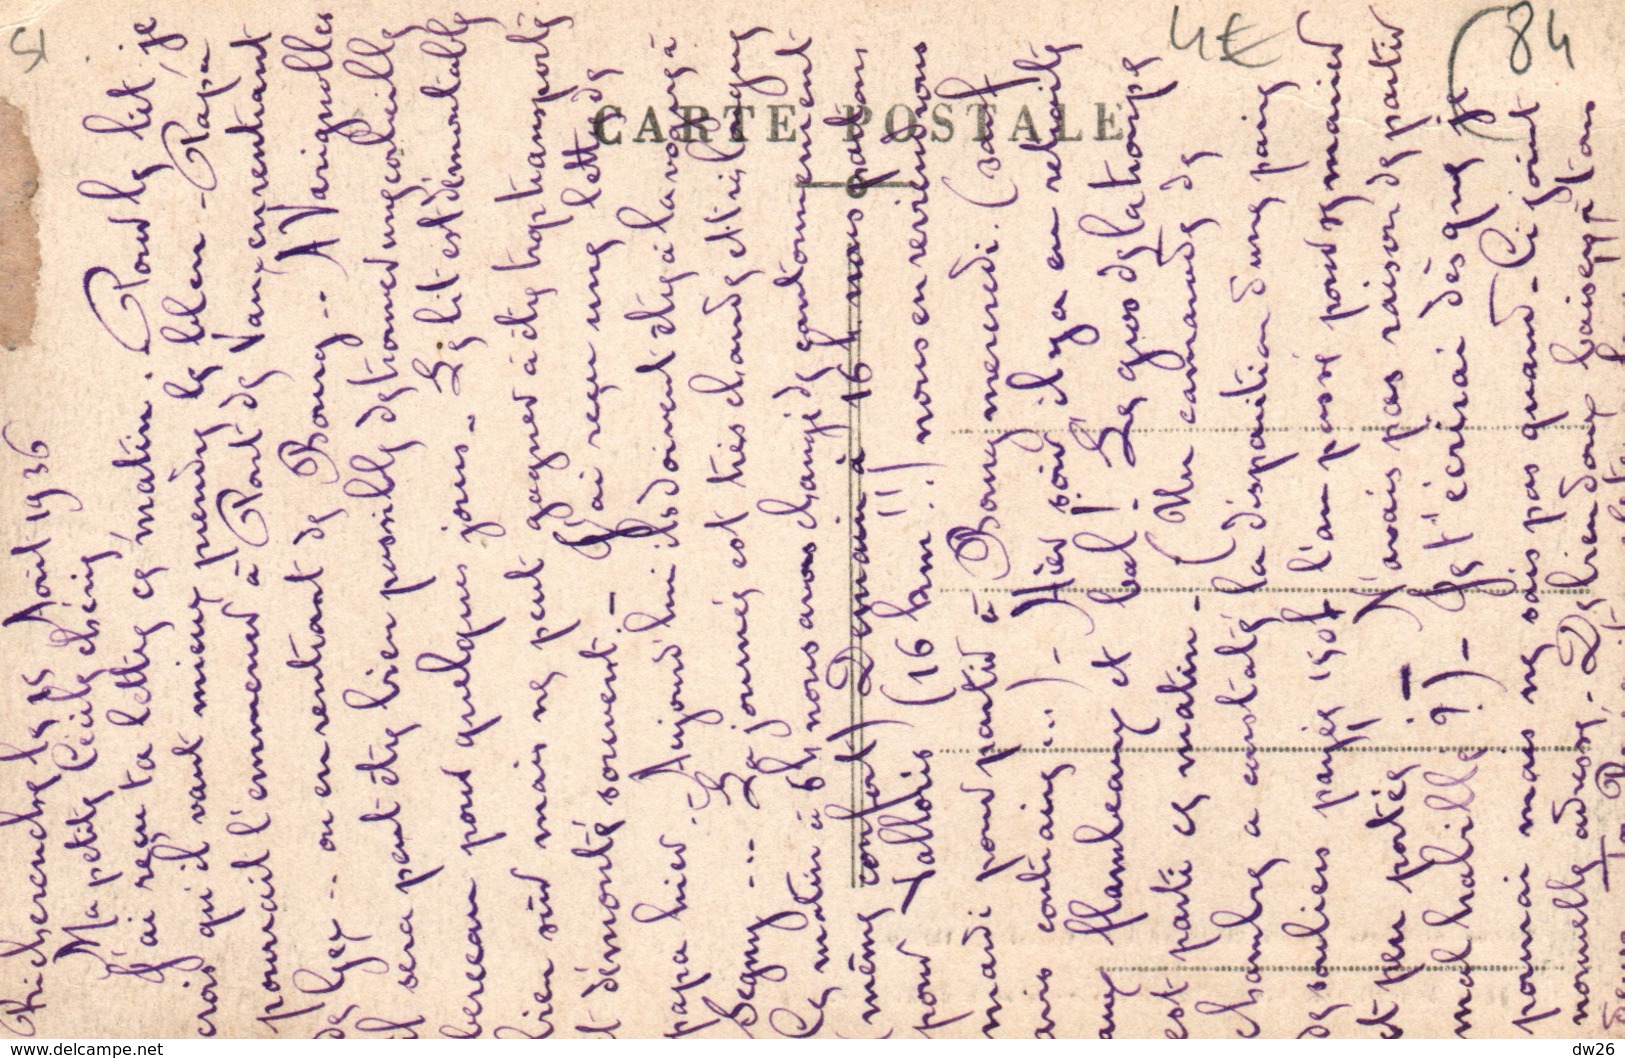 4€
84
CARTE POSTALE
Richerenches le 25 Août 1936
Ma petite Cécile chérie,
J'ai reçu ta lettre ce matin. Pour le lit, je
crois qu'il vaut mieux prendre le bleu - Papa
pourrait l'emmener à Pont de Vaux en rentrant
de Gex -- ou en rentrant de Bourg -- A Varignolles
il sera peut être bien possible de trouver une
berceau pour quelques jours - Le lit est démontable
bien sûr mais ne peut gagner à être trop transporté
et démonté souvent. - J'ai reçu une lettre de
papa hier. Aujourd'hui ils doivent être à la vogue à
Segny --- La journée est très chaude et
Ce matin à 6h nous avons changé de cantonnement
(même confort) Demain à 16h nous partons
pour Jallois (16 km !!!) nous en reviendrons
mardi pour partir à Bourg mercredi. (sauf
avis contraire...) - Hier soir il y a eu retraite
aux flambeaux et bal! Le gros de la troupe
est parti ce matin - (Un camarade de
chambre a constaté la disparition d'une paire
de souliers payés 150f l'an passé pour se marier
et peu portés! - J'avais pas raison de partir
mal habillé?!) - Je t'écrirai dès que je
pourrai mais ne sais pas quand - Ci joint
nouvelle adresse, - De bien doux baisers à tous
deux
www.delcampe.net
dw26